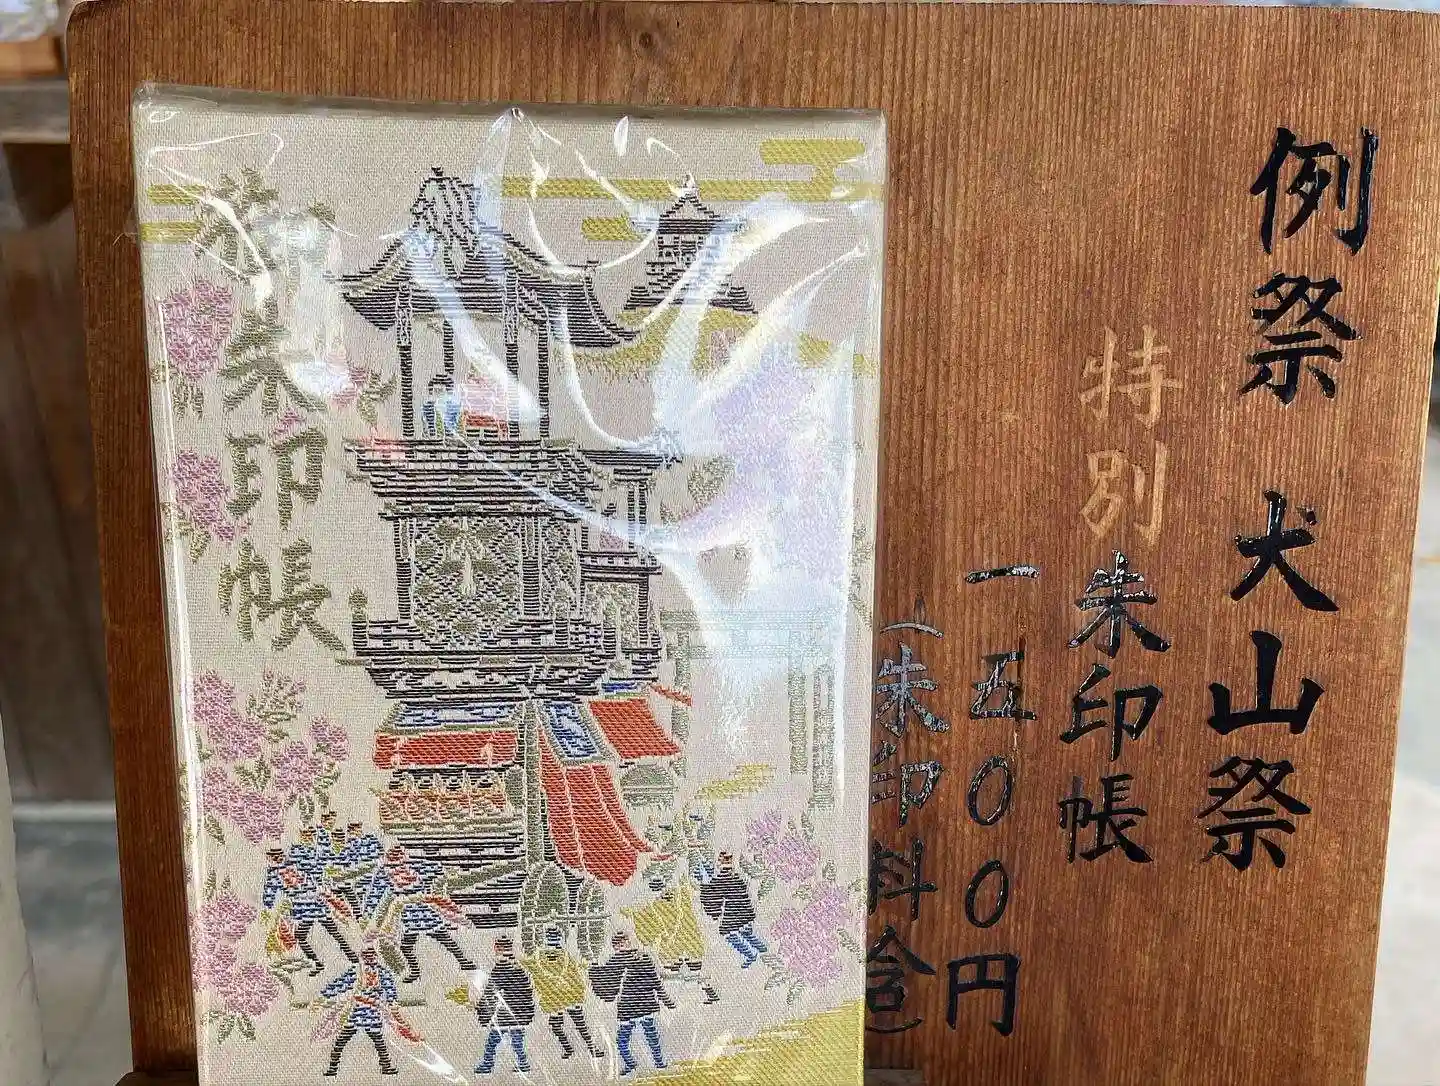 例祭 犬山祭
特別朱印帳
一五〇〇円
(朱印料含)
御朱印帳